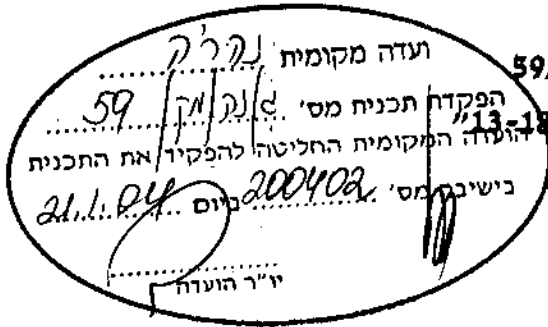 ועדה מקומית
59/
הפקדת תכנית מס' ג/נק/מק/59
13-18"
הועדה המקומית החליטה להפקיד את התכנית
בישיבה מס' 200402 ביום 21.1.04
יו"ר הועדה